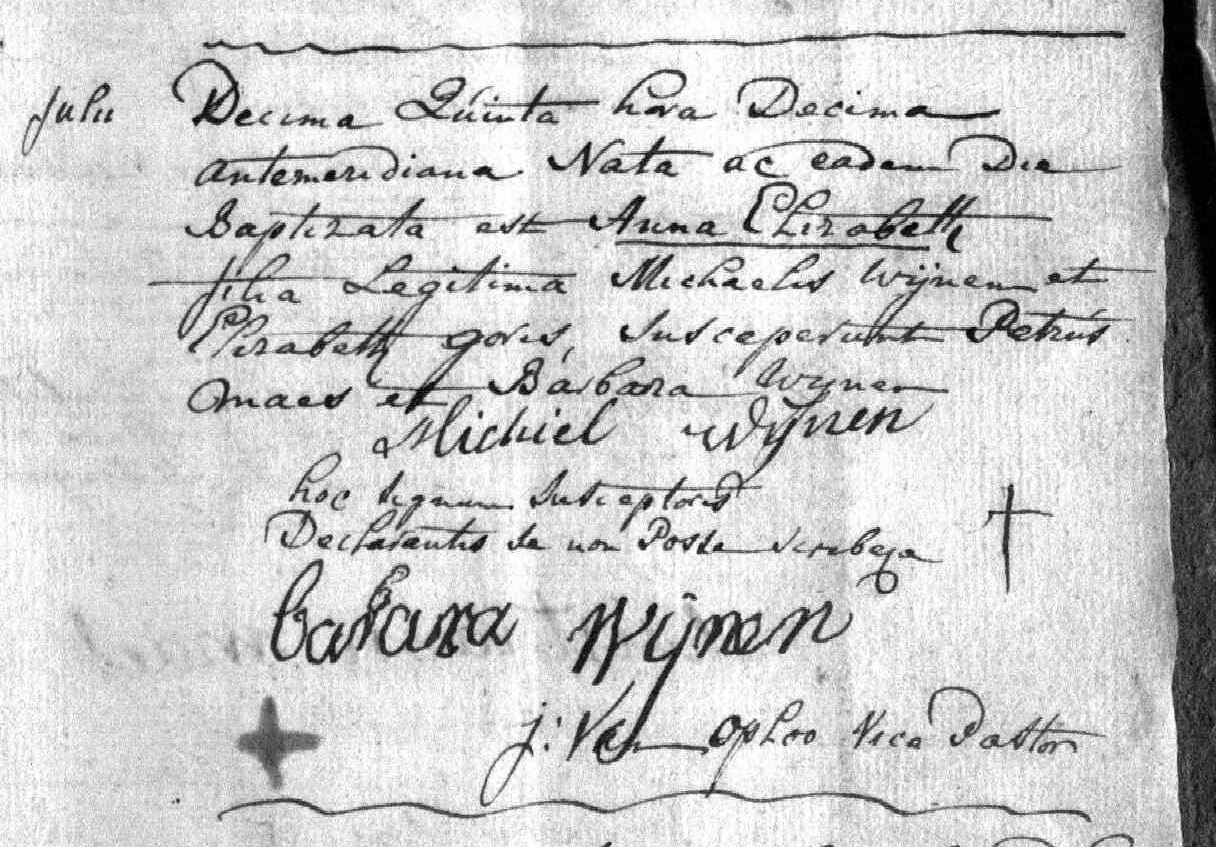 Julii Decima Quinta hora Decima
antemeridiana Nata ac eadem Die
Baptizata est Anna Elizabeth
filia Legitima Michaelis Wijnen et
Elizabeth goris, Susceperunt Petrus
maes et Barbara Wijnen
Michiel Wijnen
hoc signum Susceptoris
Declarantis se non Posse scribere
barbara Wijnen
j: Van Ophoo Vice Pastor